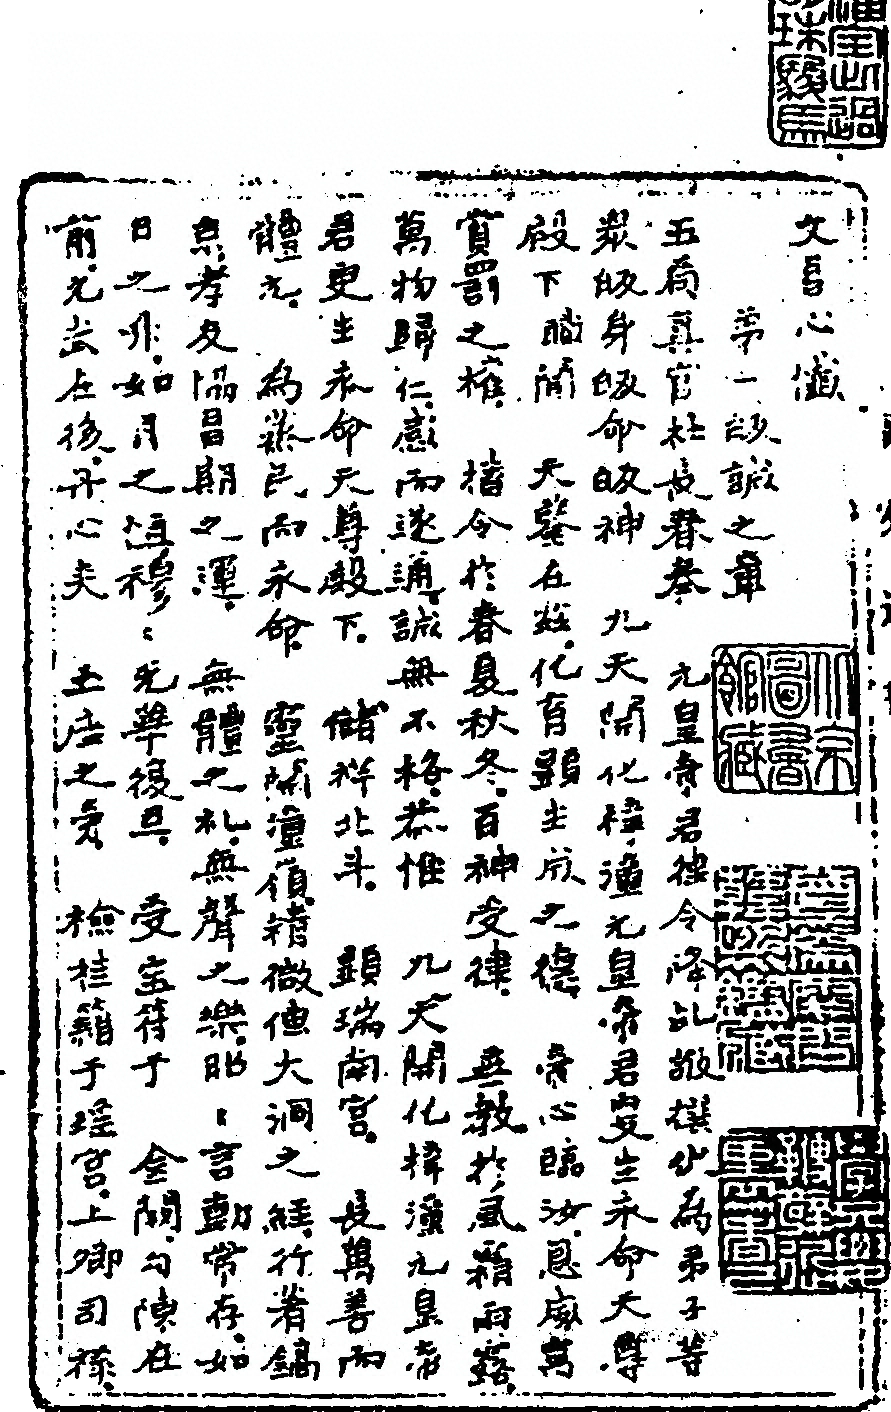 文昌心懺
第一皈誠之章
五府真官杜長春奉　元皇帝君律令降乩敬撰此為弟子等
眾皈身皈命皈神　九天開化梓潼元皇帝君更生永命天尊
殿下職開　天鑒在茲化育顯生成之德　帝心臨汝恩威寓
賞罰之權　措令於春夏秋冬百神受律　垂教於風霜雨露
萬物歸仁感而遂通誠無不格恭惟　九天開化梓潼元皇帝
君更生永命天尊殿下　儲祥北斗　顯瑞南宮　長萬善而
體元　為蒸民而永命　靈開潼嶺精微傳大洞之經行著鎬
京孝友協昌期之運　無體之礼無聲之樂昭〻言動常存如
日之升如月之恒穆〻光華復旦　受宝符于　金闕勾陳在
前元武在後丹心夾　玉座之　檢桂籍于瑤宮上卿司祿